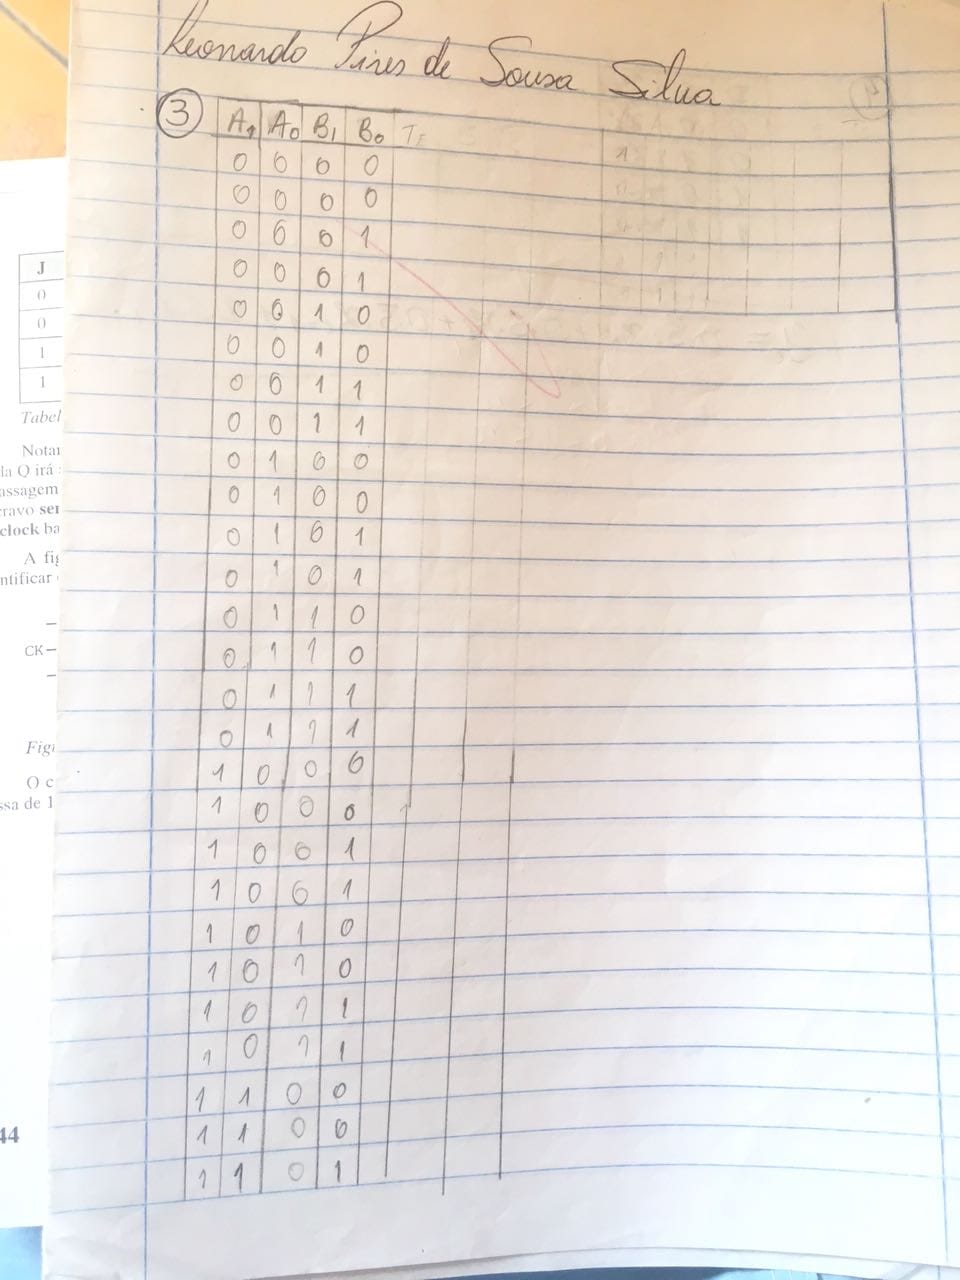 Leonardo Pires de Sousa Silva
3 A1 A0 B1 B0
0 0 0 0
0 0 0 0
0 0 0 1
0 0 0 1
0 0 1 0
0 0 1 0
0 0 1 1
0 0 1 1
0 1 0 0
0 1 0 0
0 1 0 1
0 1 0 1
0 1 1 0
0 1 1 0
0 1 1 1
0 1 1 1
1 0 0 0
1 0 0 0
1 0 0 1
1 0 0 1
1 0 1 0
1 0 1 0
1 0 1 1
1 0 1 1
1 1 0 0
1 1 0 0
1 1 0 1
J
0
0
1
1
Tabel
Notar
da Q irá
assagem
cravo ser
clock ba
A fig
ntificar
CK
Figu
O c
ssa de 1
44